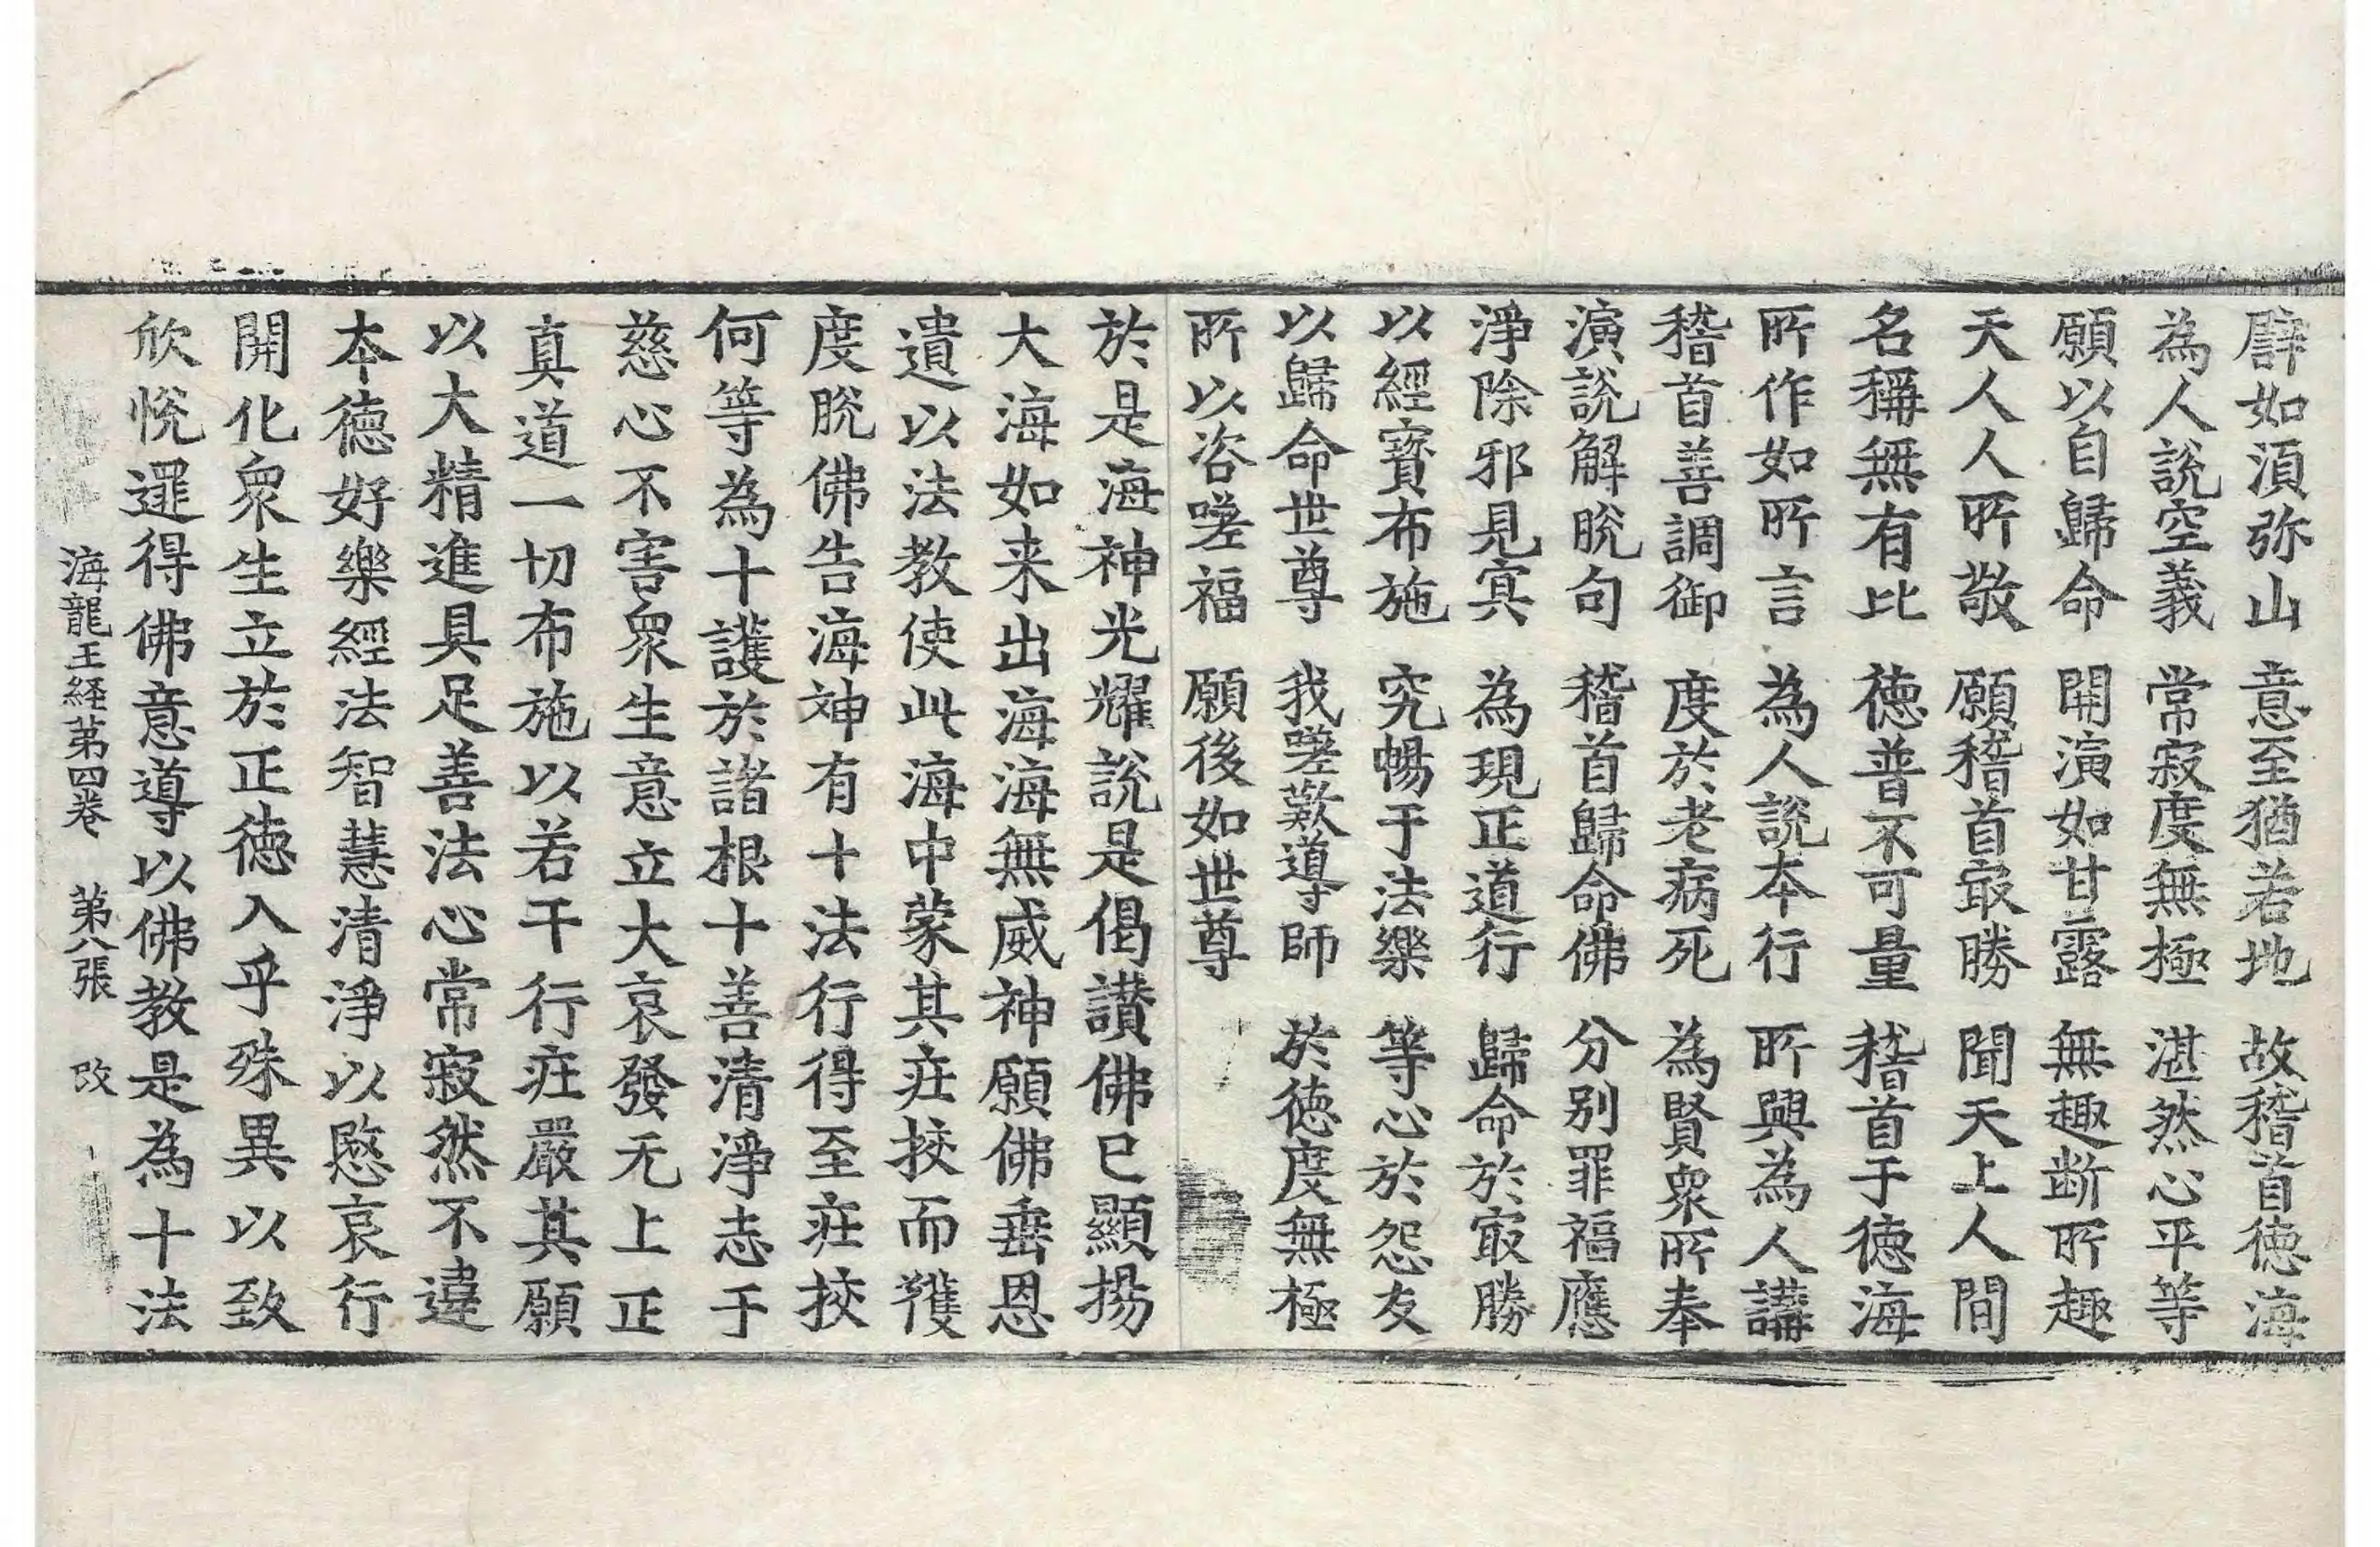 譬如湏弥山　意至猶若地　故稽首德海
為人說空義　常寂度無極　湛然心平等
願以自歸命　開演如甘露　無趣断所趣
天人人所敬　願稽首冣勝　聞天上人間
名稱無有比　德普不可量　稽首于德海
所作如所言　為人說本行　所興為人講
稽首善調御　度於老病死　為賢衆所奉
演說解脫句　稽首歸命佛　分別罪福應
淨除邪見冥　為現正道行　歸命於冣勝
以經寶布施　究暢于法樂　等心於怨友
以歸命世尊　我嗟歎導師　於德度無極
所以咨嗟福　願後如世尊
於是海神光耀說是偈讃佛已顯揚
大海如来出海海無威神願佛垂恩
遺以法教使此海中蒙其疘挍而獲
度脫佛告海神有十法行得至疘挍
何等為十護於諸根十善清淨志于
慈心不害衆生意立大哀發无上正
真道一切布施以若干行疘嚴其願
以大精進具足善法心常寂然不違
本德好樂經法智慧清淨以愍哀行
開化衆生立於正德入乎殊異以致
欣悅逮得佛意導以佛教是為十法
海龍王経第四卷　第八張　改